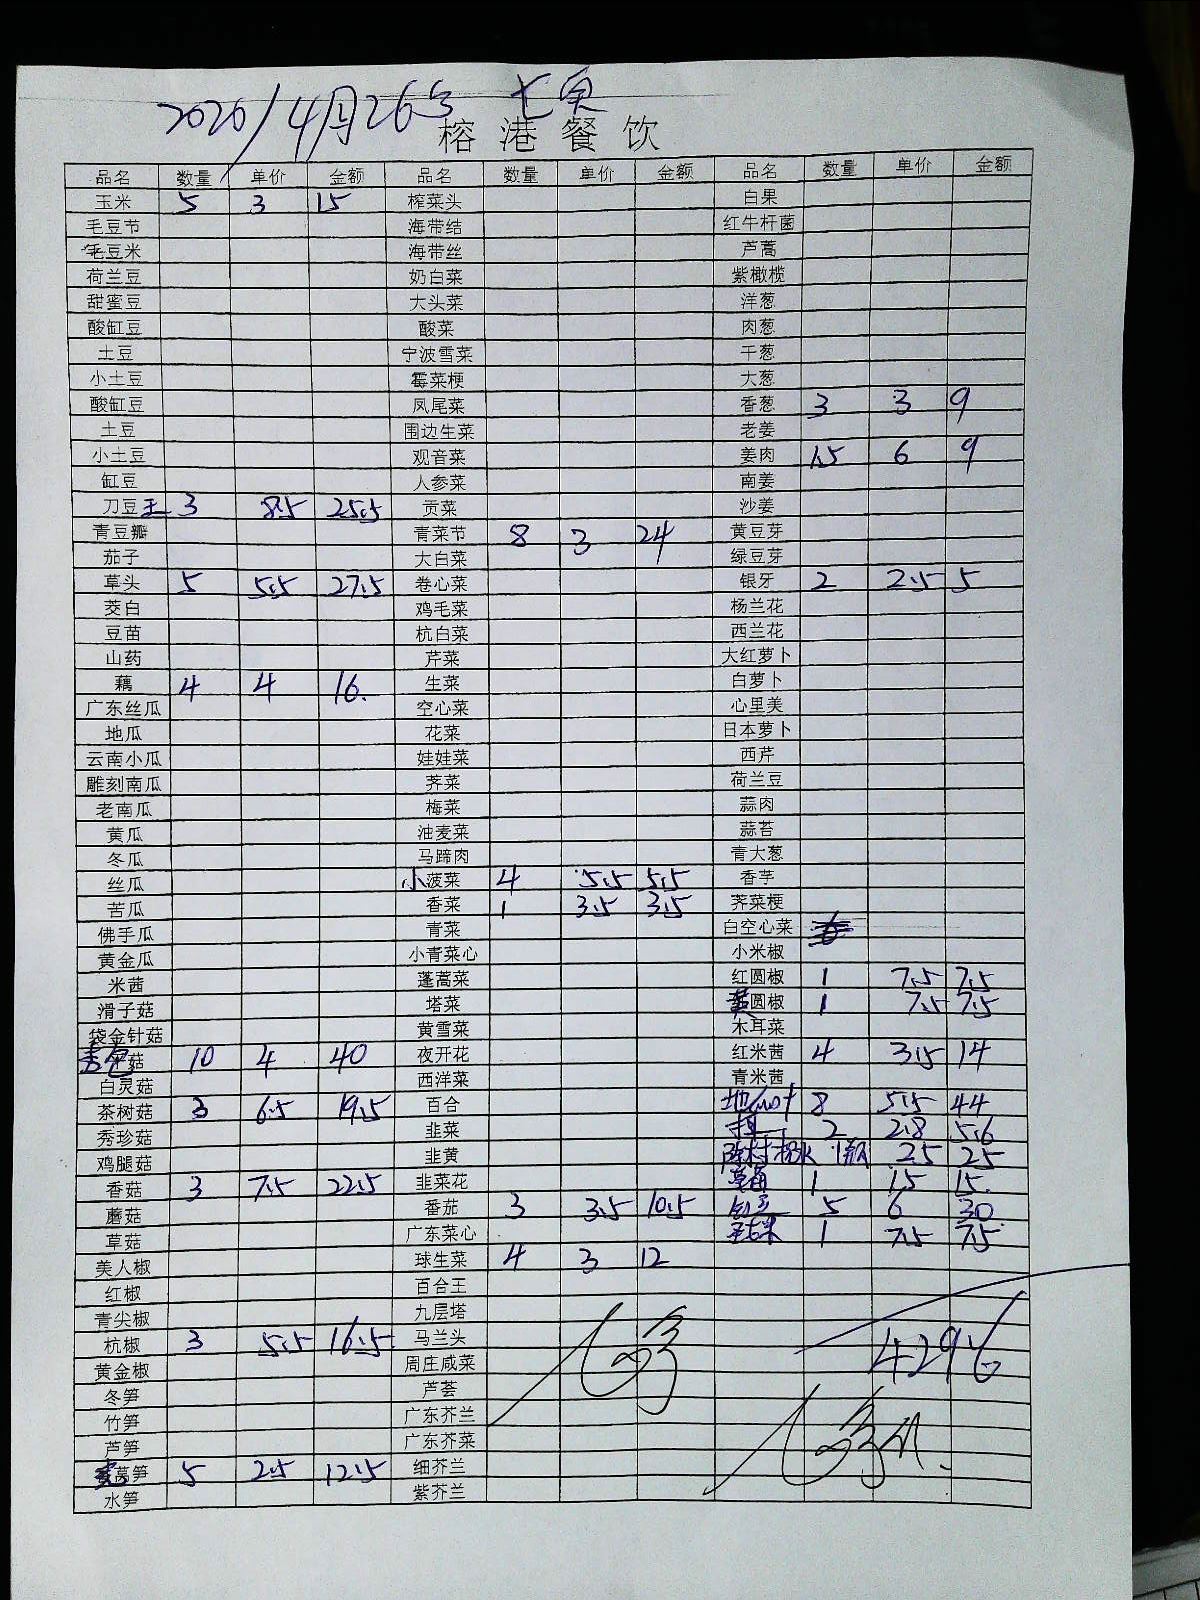 2020/4月26号
榕港餐饮
品名 数量 单价 金额 品名 数量 单价 金额 品名 数量 单价 金额
玉米 5 3 15 榨菜头 白果
毛豆节 海带结 红牛杆菌
毛豆米 海带丝 芦蒿
荷兰豆 奶白菜 紫橄榄
甜蜜豆 大头菜 洋葱
酸缸豆 酸菜 肉葱
土豆 宁波雪菜 干葱
小土豆 霉菜梗 大葱
酸缸豆 凤尾菜 香葱 3 3 9
土豆 围边生菜 老姜
小土豆 观音菜 姜肉 1.5 6 9
缸豆 人参菜 南姜
刀豆王 3 8.5 25.5 贡菜 沙姜
青豆瓣 青菜节 8 3 24 黄豆芽
茄子 大白菜 绿豆芽
草头 5 5.5 27.5 卷心菜 银牙 2 2.5 5
茭白 鸡毛菜 杨兰花
豆苗 杭白菜 西兰花
山药 芹菜 大红萝卜
藕 4 4 16. 生菜 白萝卜
广东丝瓜 空心菜 心里美
地瓜 花菜 日本萝卜
云南小瓜 娃娃菜 西芹
雕刻南瓜 荠菜 荷兰豆
老南瓜 梅菜 蒜肉
黄瓜 油麦菜 蒜苔
冬瓜 马蹄肉 青大葱
丝瓜 小菠菜 4 5.5 5.5 香芋
苦瓜 香菜 1 3.5 3.5 荠菜梗
佛手瓜 青菜 白空心菜
黄金瓜 小青菜心 小米椒
米茜 蓬蒿菜 红圆椒 1 7.5 7.5
滑子菇 塔菜 圆椒 1 7.5 7.5
袋金针菇 黄雪菜 木耳菜
菇 10 4 40 夜开花 红米茜 4 3.5 14
白灵菇 西洋菜 青米茜
茶树菇 3 6.5 19.5 百合 8 5.5 44
秀珍菇 韭菜 2 2.8 5.6
鸡腿菇 韭黄 陈村枧水 1瓶 25 25
香菇 3 7.5 22.5 韭菜花 1 15 15.
蘑菇 番茄 3 3.5 10.5 5 6 30
草菇 广东菜心 1 7.5 7.5
美人椒 球生菜 4 3 12
红椒 百合王
青尖椒 九层塔
杭椒 3 5.5 16.5 马兰头 429
黄金椒 周庄咸菜
冬笋 芦荟
竹笋 广东芥兰
芦笋 广东芥菜
莴笋 5 2.5 12.5 细芥兰
水笋 紫芥兰